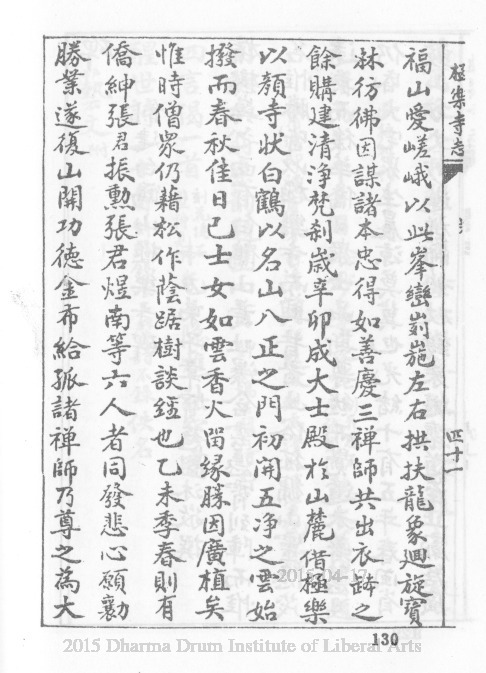 極樂寺志
四十一
福山愛嵯峨以此峯巒峛崺左右拱扶龍象迴旋寶
林彷彿因謀諸本忠得如善慶三禅師共出衣缽之
餘購建清淨梵剎歲辛卯成大士殿於山麓借極樂
以顏寺狀白鶴以名山八正之門初開五净之雲始
撥而春秋佳日已士女如雲香火留緣勝因廣植矣
惟時僧眾仍藉松作蔭踞樹談經也乙未季春則有
僑紳張君振勳張君煜南等六人者同發悲心願勷
勝業遂復山開功德金布給孤諸禅師乃尊之為大
130
2015 Dharma Drum Institute of Liberal Arts